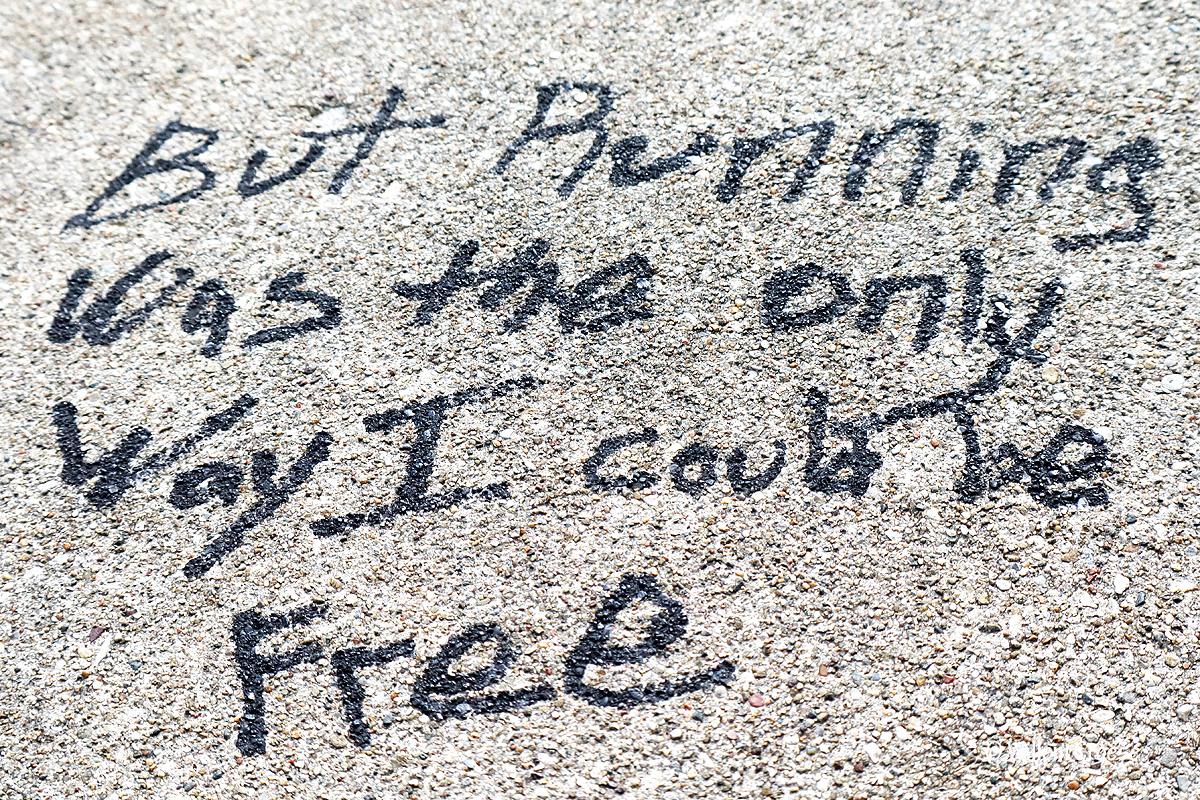 But Running
Was the only
Way I could be
Free